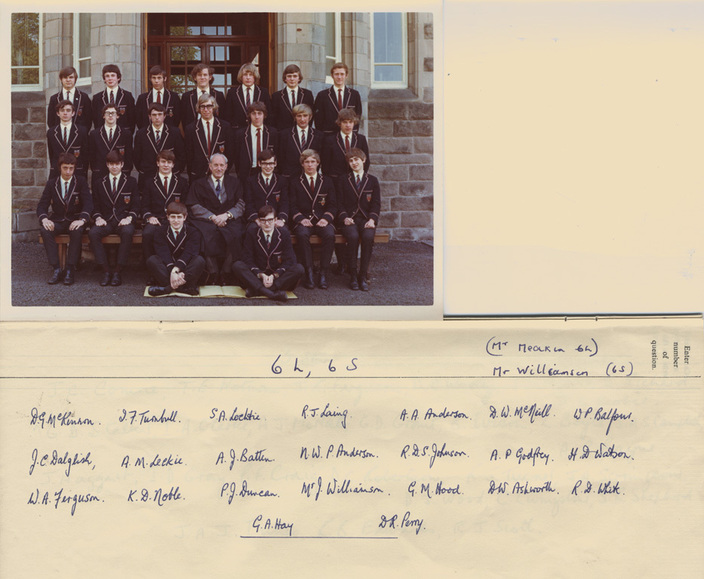 (Mr Meakin 6L)
6L, 6S
Mr Williamson (6S)
Enter
number
of
question.
D.G. McKinnon. I.F. Turnbull. S.A. Leckie R.J. Laing. A.A. Anderson. D.W. McNeill. W.P. Balfour.
J.C. Dalglish, A.M. Leckie. A.J. Batten. N.W.P. Anderson. R.D.S. Johnson. A.P. Godfrey. H.D. Watson.
W.A. Ferguson. K.D. Noble. P.J. Duncan. Mr J. Williamson. G.M. Hood. D.W. Ashworth. R.D. White.
G.A. Hay D.R. Perry.